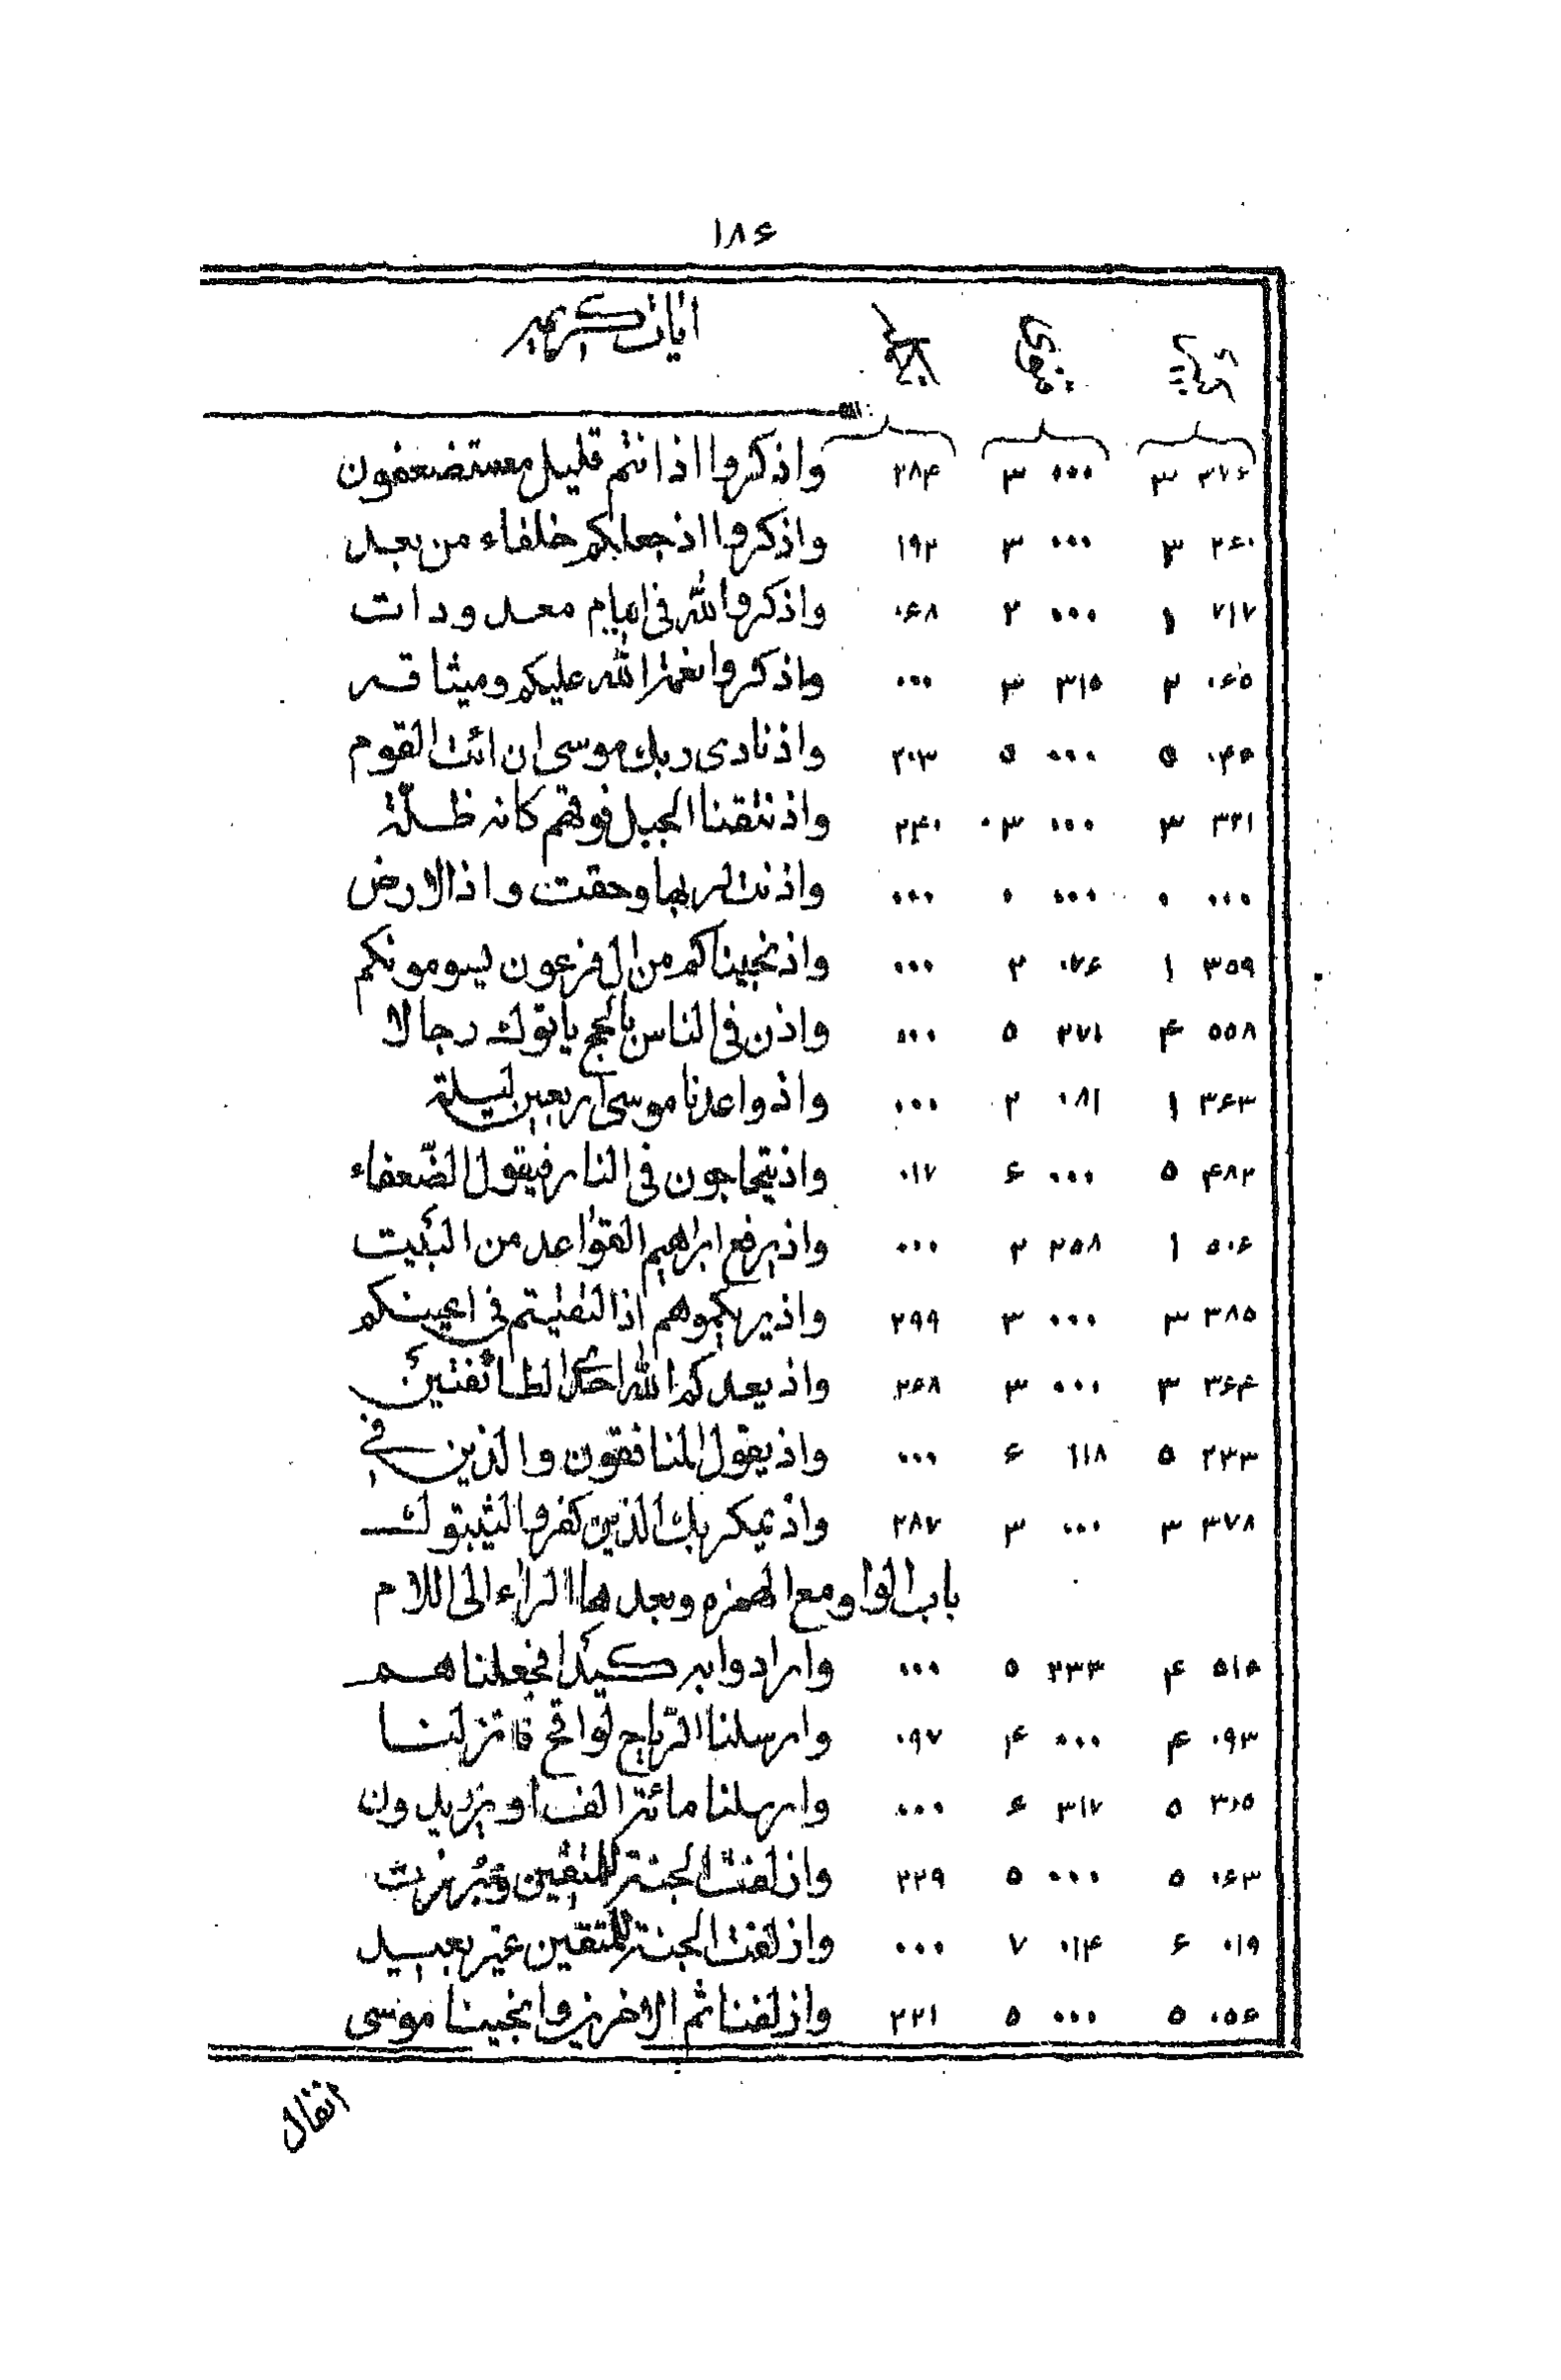 ۱۸۶
ایات کریمه
۳۷۶ ۳ ۰۰۰ ۳ ۲۸۴ واذکروا اذ انتم قلیل مستضعفون
۲۶۰ ۳ ۰۰۰ ۳ ۱۹۲ واذکروا اذ جعلکم خلفاء من بعد
۷۱۷ ۱ ۰۰۰ ۲ ۰۶۸ واذکروا الله فی ایام معدودات
۰۶۵ ۲ ۳۱۵ ۳ ۰۰۰ واذکروا نعمة الله علیکم ومیثاقه
۰۴۵ ۵ ۰۰۰ ۵ ۲۰۳ واذ نادی ربك موسی ان ائت القوم
۳۲۱ ۳ ۰۰۰ ۳ ۲۴۰ واذ نتقنا الجبل فوقهم کانه ظلّة
۰۰۰ ۰ ۰۰۰ ۰ ۰۰۰ واذنت لربها وحقت واذا الارض
۳۵۹ ۱ ۰۷۶ ۲ ۰۰۰ واذ نجیناکم من ال فرعون یسومونکم
۵۵۸ ۴ ۲۷۱ ۵ ۰۰۰ واذن فی الناس بالحج یاتوك رجالا
۳۶۳ ۱ ۰۸۱ ۲ ۰۰۰ واذ واعدنا موسی اربعین لیلة
۴۸۲ ۵ ۰۰۰ ۶ ۰۱۷ واذ یتحاجون فی النار فیقول الضّعفاء
۵۰۶ ۱ ۲۵۸ ۲ ۰۰۰ واذ یرفع ابراهیم القواعد من البیت
۳۸۵ ۳ ۰۰۰ ۳ ۲۹۹ واذ یریکموهم اذ التقیتم فی اعینکم
۳۶۴ ۳ ۰۰۰ ۳ ۲۶۸ واذ یعدکم الله احدی الطائفتین
۲۳۳ ۵ ۱۱۸ ۶ ۰۰۰ واذ یقول المنافقون والذین فی
۳۷۸ ۳ ۰۰۰ ۳ ۲۸۷ واذ یمکر بك الذین کفروا لیثبتوك
باب الواو مع الهمزه وبعدها الراء الی اللام
۵۱۵ ۴ ۲۳۳ ۵ ۰۰۰ وارادوا به کیدا فجعلناهم
۰۹۳ ۴ ۰۰۰ ۴ ۰۹۷ وارسلنا الرّیاح لواقح فانزلنا
۳۰۵ ۵ ۳۱۷ ۶ ۰۰۰ وارسلنا مائة الف او یزیدون
۰۶۳ ۵ ۰۰۰ ۵ ۲۲۹ وازلفت الجنة للمتقین وبُرزت
۰۱۹ ۶ ۰۱۴ ۷ ۰۰۰ وازلفت الجنة للمتقین غیر بعید
۰۵۶ ۵ ۰۰۰ ۵ ۲۲۱ وازلفنا ثم الاخرین وانجینا موسی
انفال